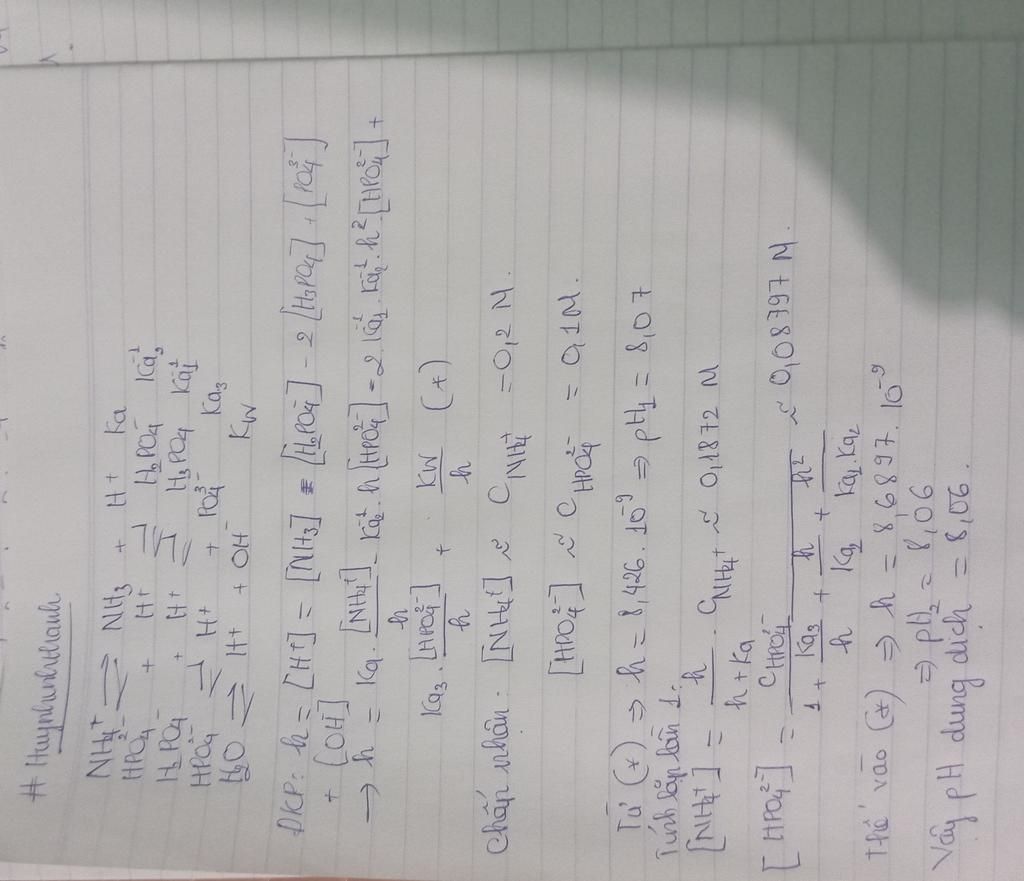 # Huynhnhukhanh
NH4+ ⇌ NH3 + H+ Ka
HPO4^2- + H+ ⇌ H2PO4^- Ka3^-1
H2PO4^- + H+ ⇌ H3PO4 Ka1^-1
HPO4^2- ⇌ H+ + PO4^3- Ka3
H2O ⇌ H+ + OH- KW
ĐKP: h = [H+] = [NH3] - [H2PO4^-] - 2[H3PO4] + [PO4^3-]
+ [OH-]
→ h = Ka.[NH4+]/h - Ka2^-1.h[HPO4^2-] = 2.Ka1^-1.Ka2^-1.h^2.[HPO4^2-] +
Ka3.[HPO4^2-]/h + KW/h (*)
Chấp nhận: [NH4+] ≈ C NH4+ = 0,2 M.
[HPO4^2-] ≈ C HPO4^2- = 0,1M.
Từ (*) ⇒ h = 8,426.10^-9 ⇒ pH1 = 8,07
Tính lặp lần 1:
[NH4+] = h/(h + Ka) . C NH4+ ≈ 0,1872 M
[HPO4^2-] = C HPO4^2-/(1 + Ka3/h + h/Ka2 + h^2/(Ka1.Ka2)) ≈ 0,08797 M.
Thế vào (*) ⇒ h = 8,6897.10^-9
⇒ pH2 = 8,06
Vậy pH dung dịch = 8,06.